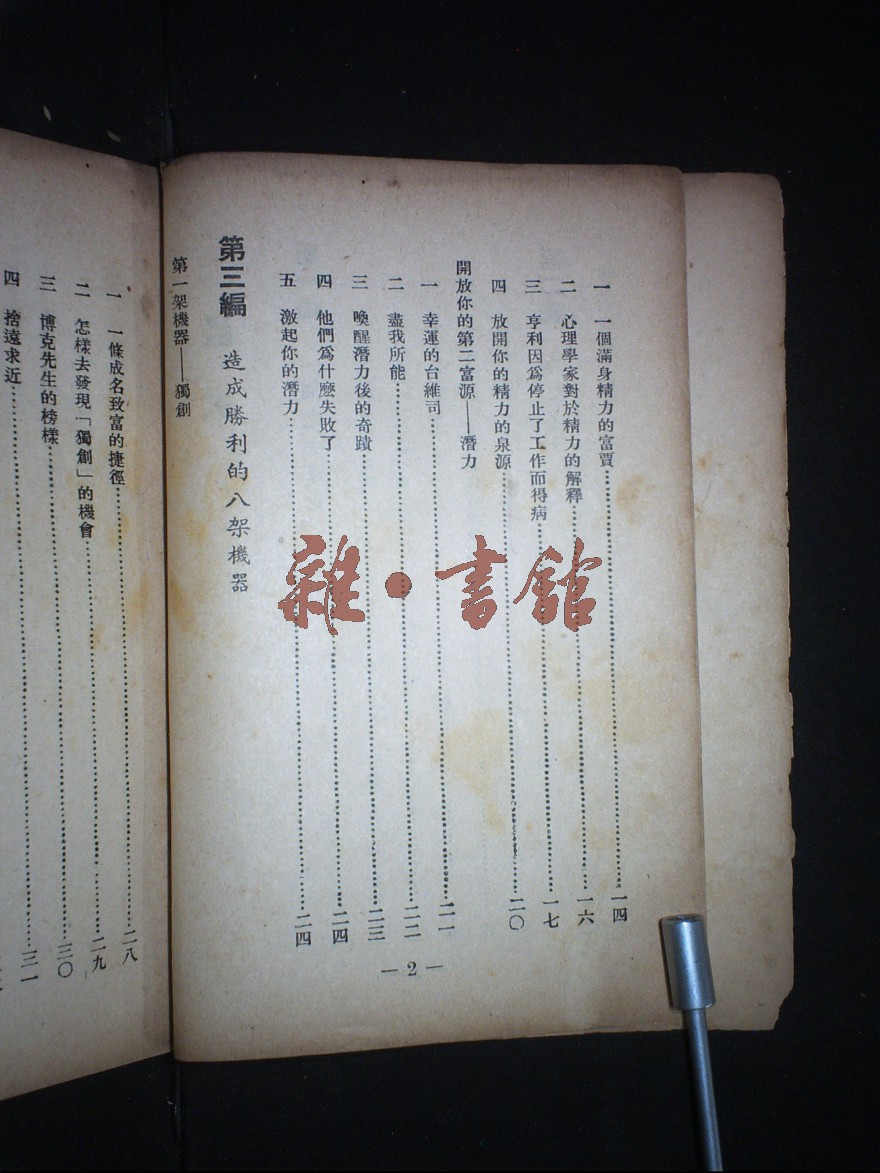 一　一個滿身精力的富賈…………一四
二　心理學家對於精力的解釋…………一六
三　亨利因爲停止了工作而得病…………一七
四　放開你的精力的泉源…………二〇
開放你的第二富源——潛力
一　幸運的台維司…………二一
二　盡我所能…………二二
三　喚醒潛力後的奇蹟…………二三
四　他們爲什麽失敗了…………二四
五　激起你的潛力…………二四
第三編　造成勝利的八架機器
第一架機器——獨創
— 2 —
一　一條成名致富的捷徑…………二八
二　怎樣去發現「獨創」的機會…………二九
三　博克先生的榜樣…………三〇
四　捨遠求近…………三一
雜·書館